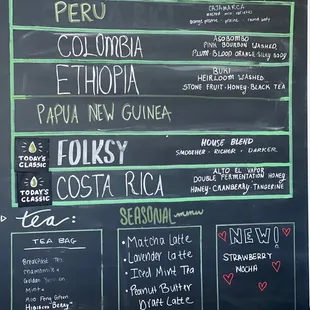 PERU
CAJAMARCA
COLOMBIA
PINK BOURBON WASHED
PLUM-BLOOD ORANGE-SILKY BODY
ETHIOPIA
BUKU
HEIRLOOM WASHED
STONE FRUIT-HONEY-BLACK TEA
PAPUA NEW GUINEA
TODAY'S
CLASSIC
FOLKSY
HOUSE BLEND
SMOOTHER - RICHER - DARKER
TODAY'S
CLASSIC
COSTA RICA
ALTO EL VAPOR
DOUBLE FERMENTATION HONEY
HONEY-CRANBERRY-TANGERINE
tea:
TEA BAG
Breakfast Tea
Chamomile
Mint
Hibiscus "Berry"
SEASONAL menu
• Matcha Latte
• Lavender Latte
• Iced Mint Tea
• Peanut Butter
Draft Latte
NEW!
STRAWBERRY
MOCHA